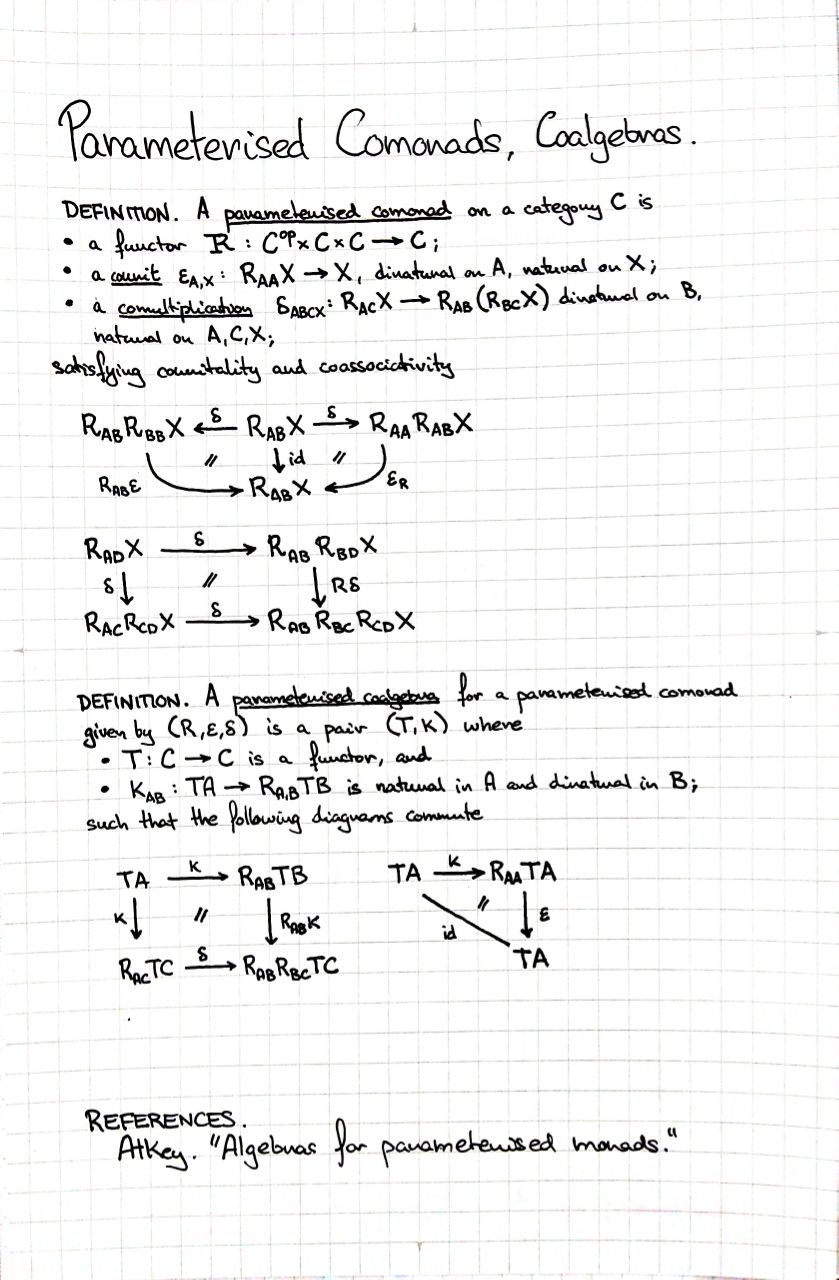 Parameterised Comonads, Coalgebras.
DEFINITION. A parameterised comonad on a category C is
• a functor R : Cᵒᵖ × C × C → C;
• a counit ε_{A,X} : R_{AA}X → X, dinatural on A, natural on X;
• a comultiplication δ_{ABCX} : R_{AC}X → R_{AB}(R_{BC}X) dinatural on B,
natural on A, C, X;
satisfying counitality and coassociativity
R_{AB}R_{BB}X ←δ— R_{AB}X —δ→ R_{AA}R_{AB}X
// ↓ id //
R_{AB}ε R_{AB}X ε_R
R_{AD}X —δ→ R_{AB}R_{BD}X
δ↓ // ↓Rδ
R_{AC}R_{CD}X —δ→ R_{AB}R_{BC}R_{CD}X
DEFINITION. A parameterised coalgebra for a parameterised comonad
given by (R,ε,δ) is a pair (T,K) where
• T : C → C is a functor, and
• K_{AB} : TA → R_{A,B}TB is natural in A and dinatural in B;
such that the following diagrams commute
TA —K→ R_{AB}TB
K↓ // ↓R_{AB}K
R_{AC}TC —δ→ R_{AB}R_{BC}TC
TA —K→ R_{AA}TA
// ↓ε
id
TA
REFERENCES.
Atkey. "Algebras for parameterised monads."